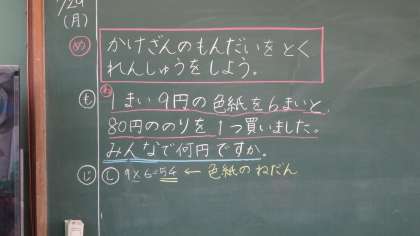 (月)
め かけざんのもんだいを とく
れんしゅうをしよう。
も 1まい9円の色紙を6まいと、
80円ののりを1つ買いました。
みんなで何円ですか。
じ し 9×6=54 ← 色紙のねだん